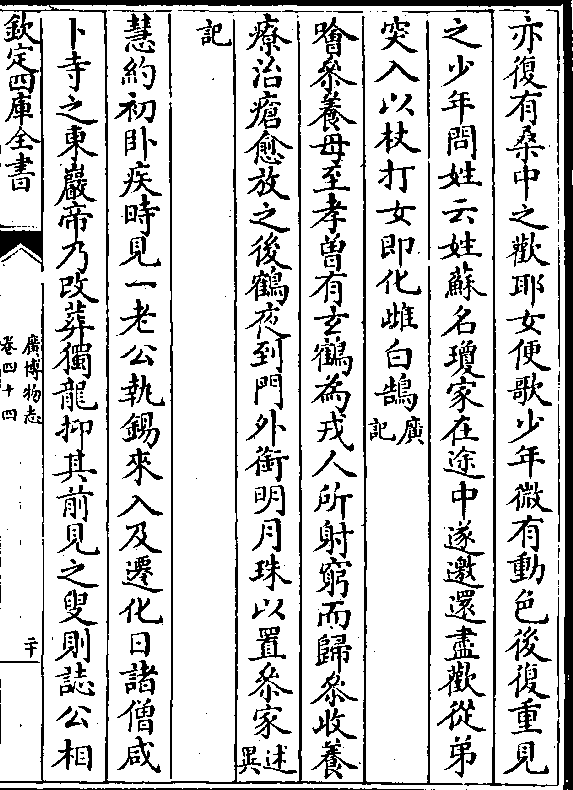 亦復有桑中之歡耶女便歌少年微有動色後復重見
之少年問姓云姓蘇名瓊家在途中遂邀還盡歡從弟
突入以杖打女即化雌白鵠廣
記
噲參養母至孝曽有玄鶴為戎人所射窮而歸參收養
療治瘡愈放之後鶴夜到門外銜明月珠以置參家述
異
記
慧約初卧疾時見一老公執錫來入及遷化日諸僧咸
卜寺之東巖帝乃改葬獨龍抑其前見之叟則誌公相
欽定四庫全書
廣博物志
卷四十四
二十